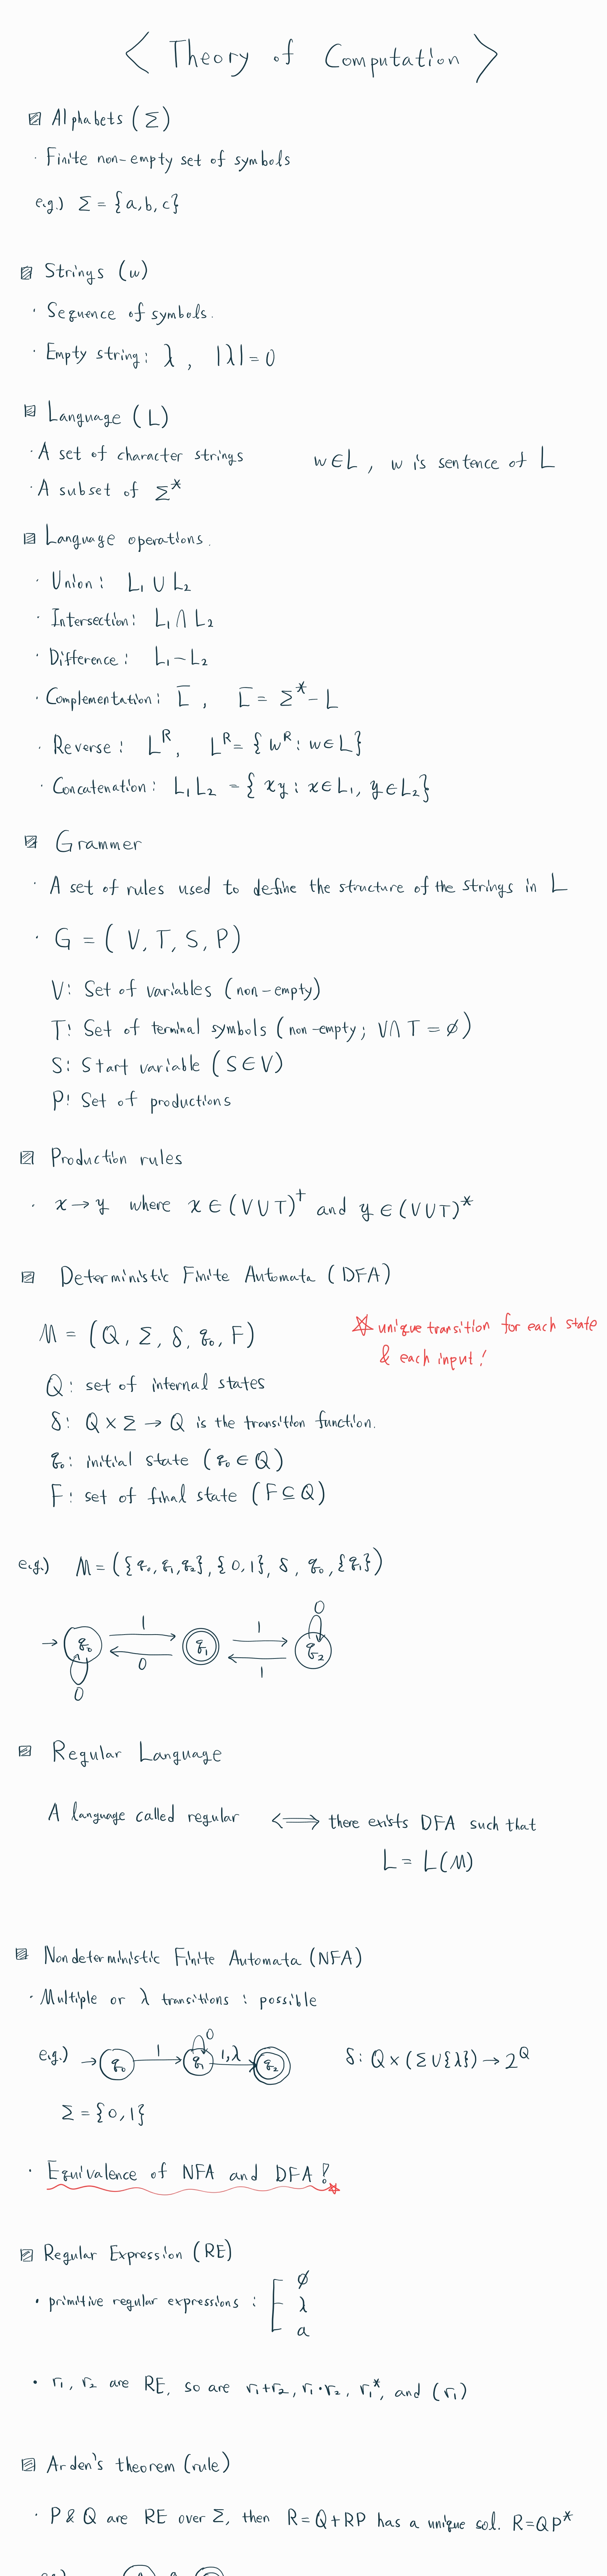 < Theory of Computation >
Alphabets (Σ)
· Finite non-empty set of symbols
e.g.) Σ = {a, b, c}
Strings (w)
· Sequence of symbols.
· Empty string: λ, |λ| = 0
Language (L)
· A set of character strings w∈L, w is sentence of L
· A subset of Σ*
Language operations.
· Union: L₁ ∪ L₂
· Intersection: L₁ ∩ L₂
· Difference: L₁ - L₂
· Complementation: L̅, L̅ = Σ* - L
· Reverse: Lᴿ, Lᴿ = {wᴿ: w∈L}
· Concatenation: L₁L₂ = {xy: x∈L₁, y∈L₂}
Grammer
· A set of rules used to define the structure of the strings in L
· G = (V, T, S, P)
V: Set of variables (non-empty)
T: Set of terminal symbols (non-empty; V∩T = ∅)
S: Start variable (S∈V)
P: Set of productions
Production rules
· x → y where x ∈ (V∪T)⁺ and y ∈ (V∪T)*
Deterministic Finite Automata (DFA)
M = (Q, Σ, δ, q₀, F) ☆ unique transition for each state
& each input!
Q: set of internal states
δ: Q × Σ → Q is the transition function.
q₀: initial state (q₀ ∈ Q)
F: set of final state (F ⊆ Q)
e.g.) M = ({q₀, q₁, q₂}, {0, 1}, δ, q₀, {q₁})
0
1 1
→ q₀ q₁ q₂
0 1
0
Regular Language
A language called regular ⟺ there exists DFA such that
L = L(M)
Nondeterministic Finite Automata (NFA)
· Multiple or λ transitions : possible
0
e.g.) → q₀ 1 q₁ 1,λ q₂ δ: Q × (Σ∪{λ}) → 2^Q
Σ = {0, 1}
· Equivalence of NFA and DFA! ☆
Regular Expression (RE)
∅
· primitive regular expressions : λ
a
· r₁, r₂ are RE, so are r₁+r₂, r₁·r₂, r₁*, and (r₁)
Arden's theorem (rule)
· P & Q are RE over Σ, then R=Q+RP has a unique sol. R=QP*